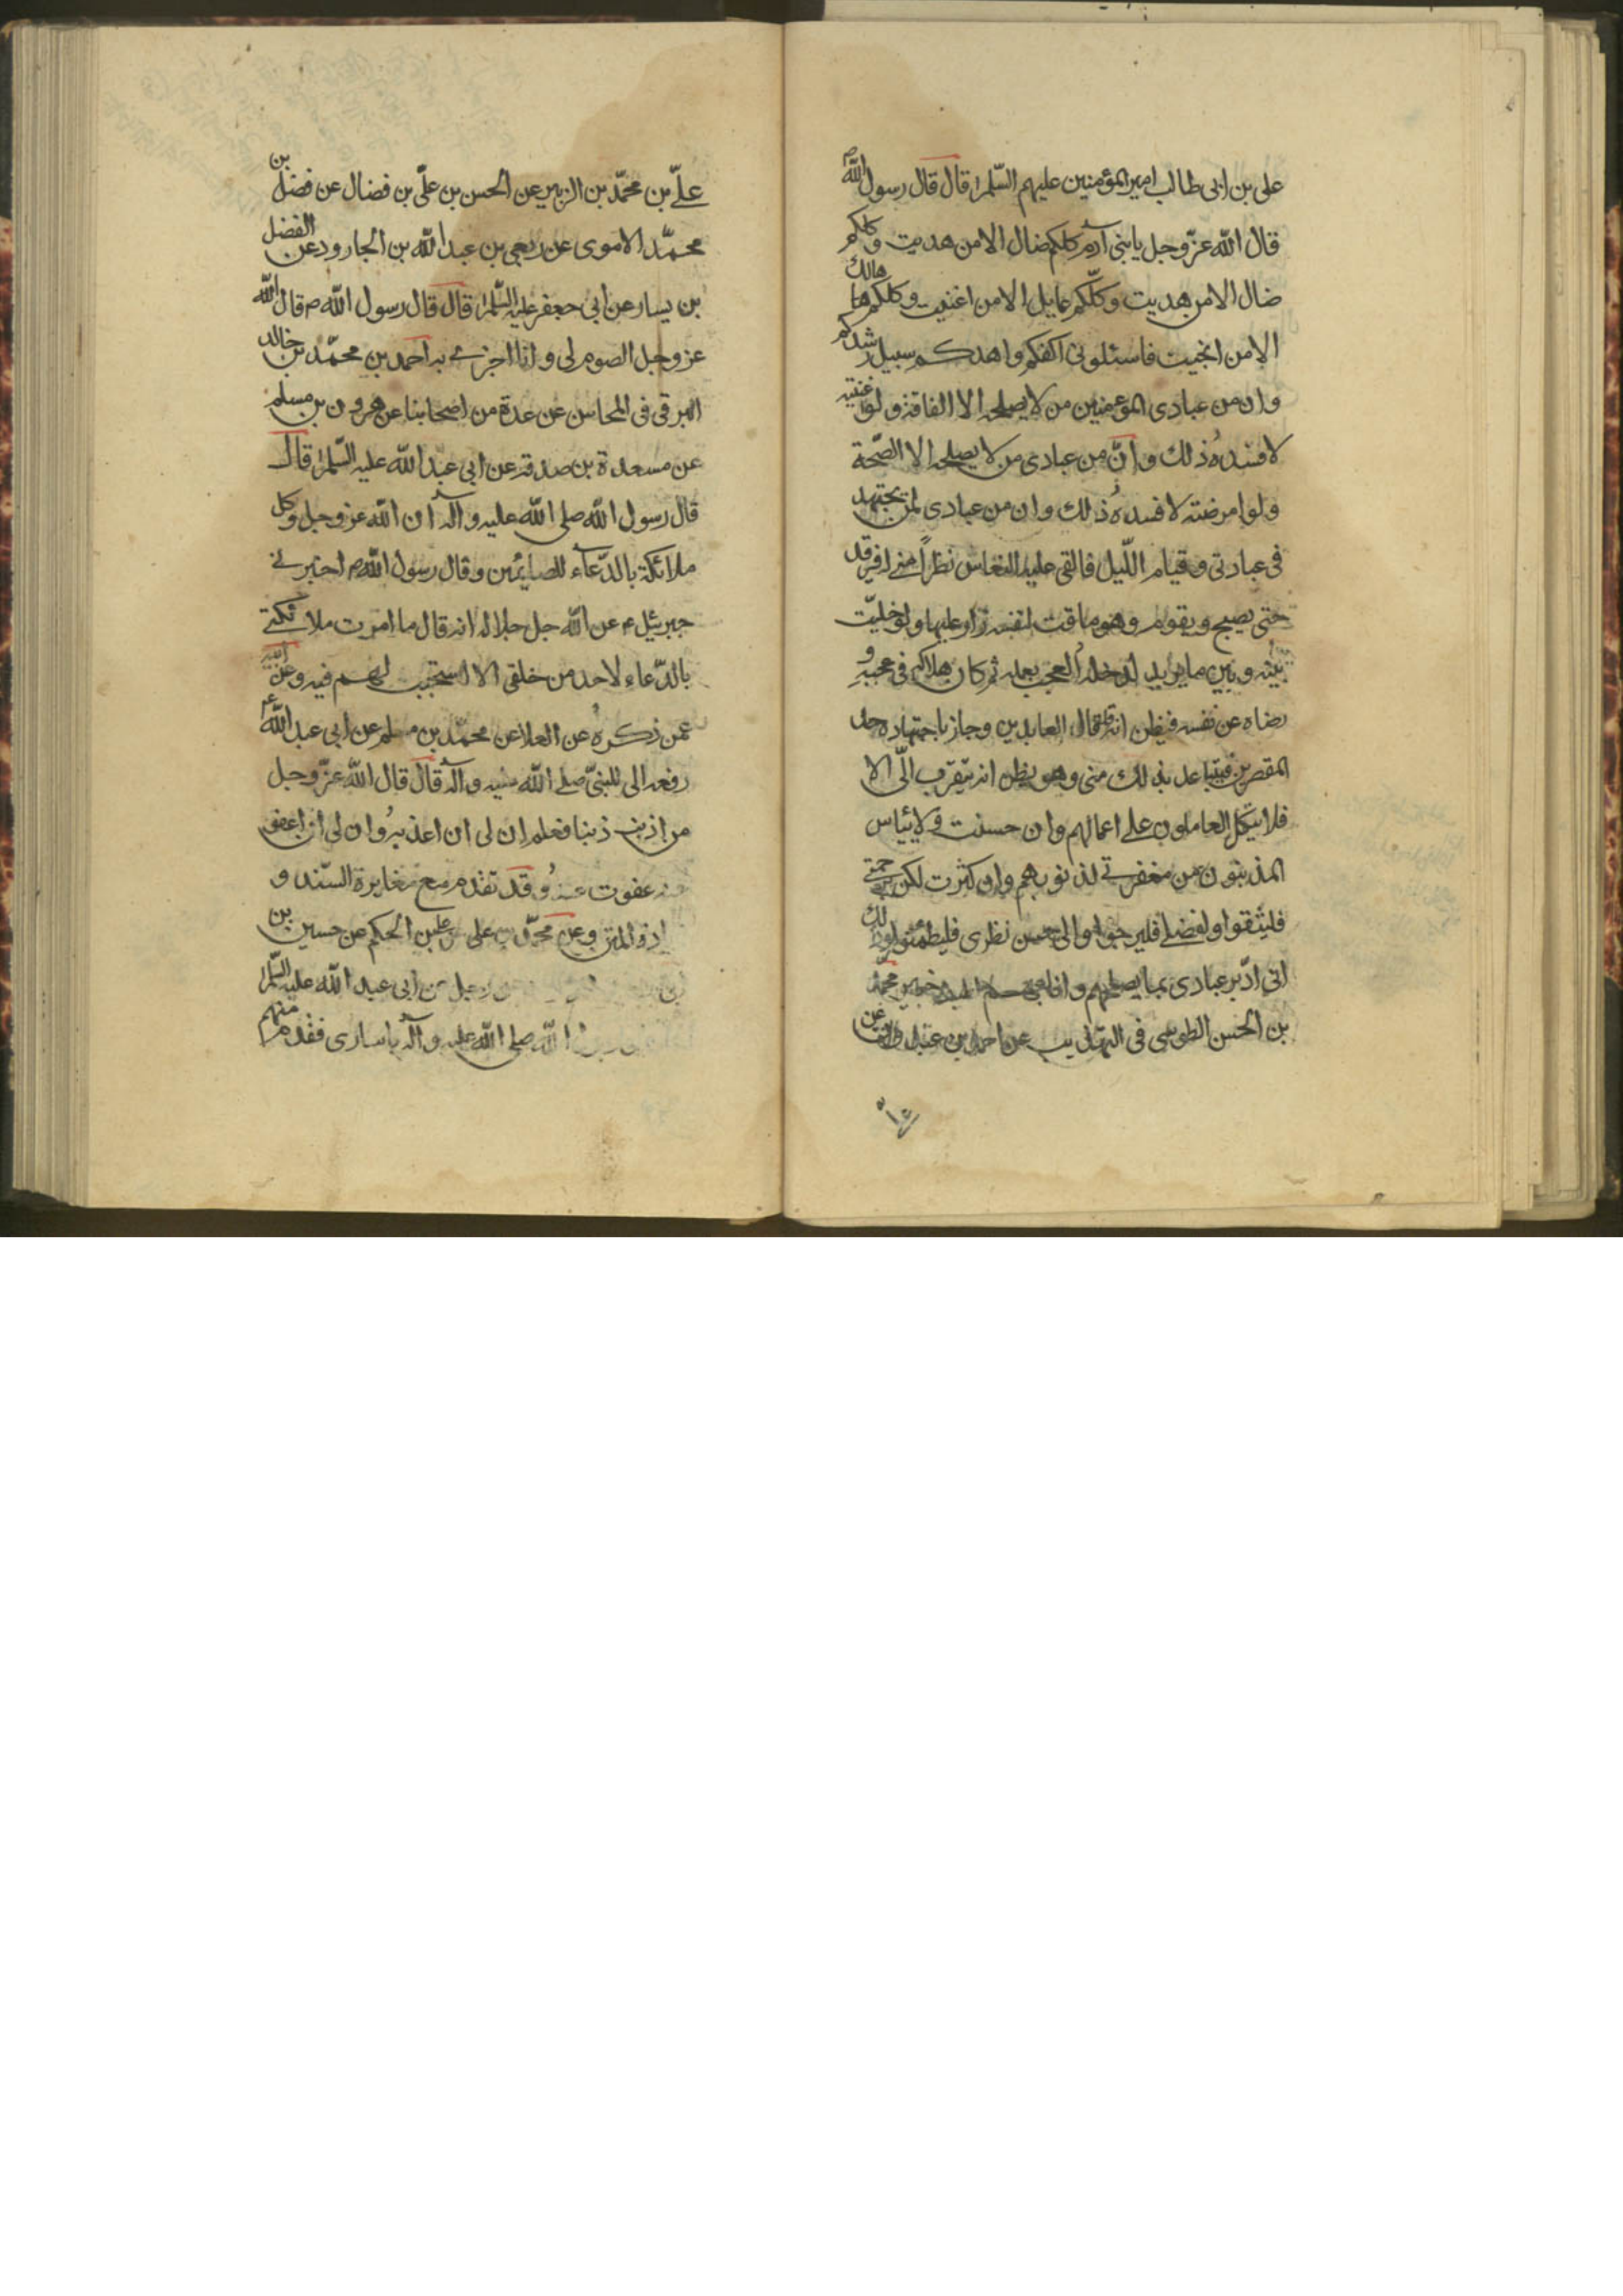 على بن ابى طالب امير المؤمنين عليهم السّلام قال قال رسول الله ص
قال الله عزّ وجل يا بنى آدم كلكم ضال الا من هديت وكلكم
ضال الا من هديت وكلّكم عايل الا من اغنيت وكلكم هالك
الا من انجيت فاسئلونى اكفكم واهدكم سبيل رشدكم
وان من عبادى المؤمنين من لا يصلحه الا الفاقة ولو اغنيته
لافسده ذلك وانّ من عبادى من لا يصلحه الا الصّحة
ولو امرضته لافسده ذلك وان من عبادى لمن يجتهد
فى عبادتى وقيام اللّيل فالقى عليه النعاس نظراً منى له فيرقد
حتى يصبح ويقوم وهو ماقت لنفسه زار عليها ولو خليّت
بينه وبين ما يريد لدخله العجب بعمله ثم كان هلاكه فى عجبه و
رضاه عن نفسه فيظن انه قد فاق العابدين وجاز باجتهاده حد
المقصرين فيتباعد بذلك منى وهو يظن انه يتقرب الىّ الا
فلا يتكل العاملون على اعمالهم وان حسنت ولا ييأس
المذنبون من مغفرتى لذنوبهم وان كثرت لكن برحمتى
فليثقوا ولفضلى فليرجوا والى حسن نظرى فليطمئنوا وذلك
انى ادّبر عبادى بما يصلحهم وانا بهم خبير محمّد
بن الحسن الطوسى فى التهذيب عن احمد بن عبدون عن
علىّ بن محمّد بن الزبير عن الحسن بن علّى بن فضال عن فضل بن
محمّد الاموى عن ربعى بن عبد الله بن الجارود عن الفضل
بن يسار عن ابى جعفر عليه السّلام قال قال رسول الله ص قال الله
عز وجل الصوم لى وانا اجزى به احمد بن محمّد بن خالد
البرقى فى المحاسن عن عدة من اصحابنا عن هرون بن مسلم
عن مسعدة بن صدقه عن ابى عبد الله عليه السّلام قال
قال رسول الله صلى الله عليه وآله ان الله عز وجل وكل
ملائكة بالدّعاء للصائمين وقال رسول الله ص اخبرنى
جبرئيل ع عن الله جل جلاله انه قال ما امرت ملائكتى
بالدّعاء لاحد من خلقى الا استجبت لهم فيه وعن ابيه
عمن ذكره عن العلا عن محمّد بن مسلم عن ابى عبد الله ع
رفعه الى النبىّ صلى الله عليه وآله قال قال الله عزّ وجل
من اذنب ذنبا فعلم ان لى ان اعذبه وان لى ان اعفو
عنه عفوت عنه وقد تقدم مع مغايرة السّند و
المتن وعن محمّد بن على عن على بن الحكم عن حسين بن
رجل عن ابى عبد الله عليه السّلام
رسول الله صلى الله عليه وآله باسارى فقدم منهم